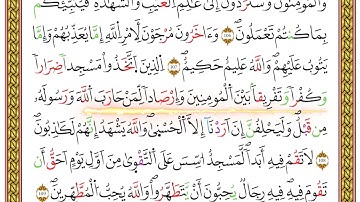 وَالْمُؤْمِنُونَ وَسَتُرَدُّونَ إِلَىٰ عَٰلِمِ الْغَيْبِ وَالشَّهَٰدَةِ فَيُنَبِّئُكُم
بِمَا كُنتُمْ تَعْمَلُونَ وَءَاخَرُونَ مُرْجَوْنَ لِأَمْرِ اللَّهِ إِمَّا يُعَذِّبُهُمْ وَإِمَّا
يَتُوبُ عَلَيْهِمْ وَاللَّهُ عَلِيمٌ حَكِيمٌ الَّذِينَ اتَّخَذُوا مَسْجِدًا ضِرَارًا
وَكُفْرًا وَتَفْرِيقًا بَيْنَ الْمُومِنِينَ وَإِرْصَادًا لِّمَنْ حَارَبَ اللَّهَ وَرَسُولَهُ
مِن قَبْلُ وَلَيَحْلِفُنَّ إِنْ أَرَدْنَا إِلَّا الْحُسْنَىٰ وَاللَّهُ يَشْهَدُ إِنَّهُمْ لَكَٰذِبُونَ
لَا تَقُمْ فِيهِ أَبَدًا لَّمَسْجِدٌ أُسِّسَ عَلَى التَّقْوَىٰ مِنْ أَوَّلِ يَوْمٍ أَحَقُّ أَن
تَقُومَ فِيهِ فِيهِ رِجَالٌ يُحِبُّونَ أَن يَتَطَهَّرُوا وَاللَّهُ يُحِبُّ الْمُطَّهِّرِينَ